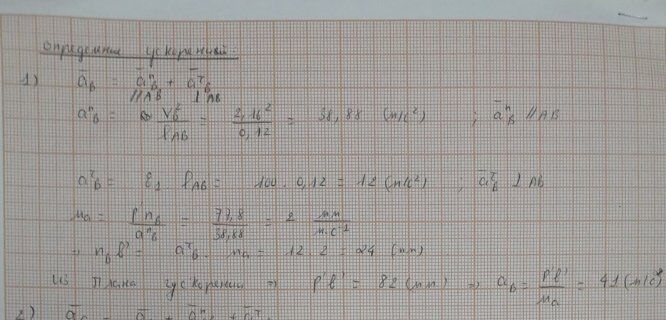 определение ускорений:
1) a̅_B = a̅ⁿ_B + a̅ᵗ_B
//AB ⊥AB
aⁿ_B = V_B² / l_AB = 2,16² / 0,12 = 38,88 (м/с²) ; a̅ⁿ_B //AB
aᵗ_B = ε₁ · l_AB = 100 · 0,12 = 12 (м/с²) ; a̅ᵗ_B ⊥ AB
μa = p'n_B / aⁿ_B = 77,8 / 38,88 = 2 мм / м·с⁻²
n_B b' = aᵗ_B · μa = 12 · 2 = 24 (мм)
из плана ускорений ⇒ p'b' = 82 (мм) ⇒ a_B = p'b' / μa = 41 (м/с²)
2)